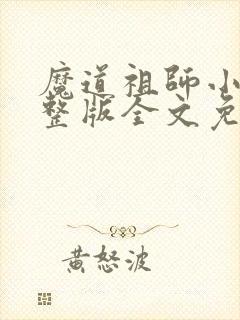 魔道祖師小
整版全文免
黄怒波